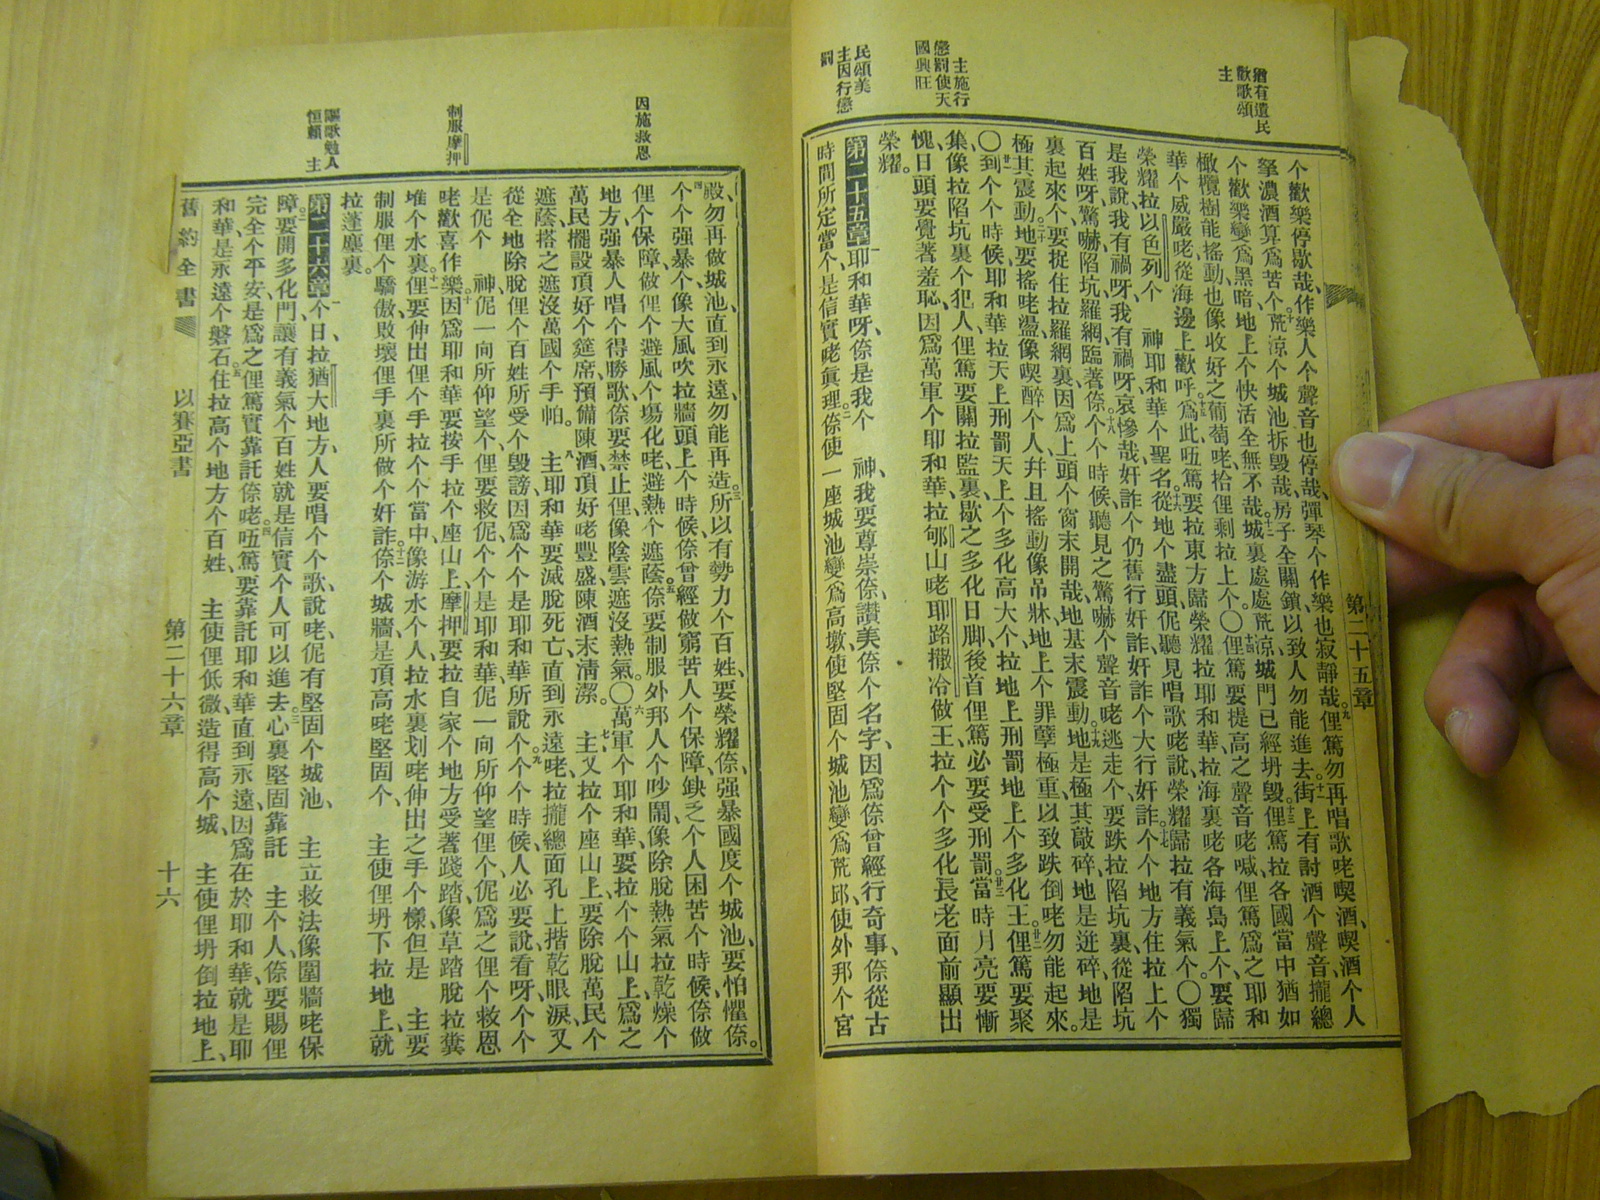 猶有遺民
歡歌頌
主
主施行
懲罰使天
國興旺
民頌美
主因行懲
罰
個歡樂停歇哉、作樂人个聲音也停哉、彈琴个作樂也寂靜哉。九俚篤勿再唱歌咾喫酒、喫酒个人
拏濃酒算爲苦个。十荒涼个城池拆毀哉、房子全關鎖以致人勿能進去。十一街上有討酒个聲音、攏總
个歡樂變爲黑暗、地上个快活全無不哉。十二城裏處處荒涼、城門已經坍毀。十三俚篤拉各國當中猶如
橄欖樹能搖動、也像收好之葡萄咾拾俚剩拉上个。〇十四俚篤要提高之聲音咾喊、俚篤爲之耶和
華个威嚴咾從海邊上歡呼。十五爲此㑚篤要拉東方歸榮耀拉耶和華、拉海裏咾各海島上个、要歸
榮耀拉以色列个 神耶和華个聖名。十六從地个盡頭伲聽見唱歌咾說、榮耀歸拉有義氣个。〇獨
是我說、我有禍呀、我有禍呀、哀慘哉、奸詐个仍舊行奸詐、奸詐个大行奸詐。十七个个地方住拉上个
百姓呀、驚嚇陷坑羅網、臨著倷。十八个个時候、聽見之驚嚇个聲音咾逃走个、要跌拉陷坑裏、從陷坑
裏起來个、要捉住拉羅網裏、因爲上頭个窗末開哉、地基末震動。十九地是極其敲碎、地是迸碎、地是
極其震動。二十地要搖咾盪、像喫醉个人、幷且搖動像吊牀、地上个罪孽極重、以致跌倒咾勿能起來。
〇廿一到个个時候、耶和華拉天上刑罰天上个多化高大个、拉地上刑罰地上个多化王。廿二俚篤要聚
集、像拉陷坑裏个犯人、俚篤要關拉監裏、歇之多化日脚、後首俚篤必要受刑罰。廿三當時月亮要慚
愧、日頭要覺著羞恥、因爲萬軍个耶和華、拉郇山咾耶路撒冷做王、拉个个多化長老面前顯出
榮耀。
第二十五章 一耶和華呀、倷是我个 神、我要尊崇倷、讚美倷个名字、因爲倷曾經行奇事、倷從古
時間所定當个、是信實咾眞理。二倷使一座城池變爲高墩、使堅固个城池變爲荒邱、使外邦个宮
第二十五章
因施救恩
制服摩押
謳歌勉人
恒賴 主
殿勿再做城池、直到永遠、勿能再造。三所以有勢力个百姓、要榮耀倷、强暴國度个城池、要怕懼倷。
四个个强暴个、像大風吹拉牆頭上个時候、倷曾經做窮苦人个保障、缺乏个人困苦个時候、倷做
俚个保障、做俚个避風个場化咾、避熱个遮蔭。五倷要制服外邦人个吵鬧、像除脫熱氣拉乾燥个
地方、强暴人唱个得勝歌、倷要禁止俚、像陰雲遮沒熱氣。〇六萬軍个耶和華、要拉个个山上、爲之
萬民擺設頂好个筵席、預備陳酒、頂好咾豐盛、陳酒末清潔。七主又拉个座山上、要除脫萬民个
遮蔭、搭之遮沒萬國个手帕。八 主耶和華要滅脫死亡、直到永遠咾、拉攏總面孔上揩乾眼淚、又
從全地除脫俚个百姓所受个毀謗、因爲个个是耶和華所說个。九个个時候、人必要說、看呀、个个
是伲个 神、伲一向所仰望个、俚要救伲、个个是耶和華、伲一向所仰望俚个、伲爲之俚个救恩
咾歡喜作樂。十因爲耶和華要按手拉个座山上、摩押要拉自家个地方受著踐踏、像草踏脫拉糞
堆个水裏。十一俚要伸出俚个手拉个个當中、像游水个人、拉水裏划咾伸出之手个樣、但是 主要
制服俚个驕傲、敗壞俚手裏所做个奸詐。十二倷个城牆是頂高咾堅固个、 主使俚坍下拉地上、就
拉蓬塵裏。
第二十六章 一个日拉猶大地方、人要唱个个歌、說咾、伲有堅固个城池、 主立救法像圍牆咾保
障。二要開多化門、讓有義氣个百姓就是信實个人可以進去。三心裏堅固靠託 主个人、倷要賜俚
完全个平安、是爲之俚篤實靠託倷咾。四㑚篤要靠託耶和華直到永遠、因爲在於耶和華、就是耶
和華、是永遠个磐石。五住拉高个地方个百姓、 主使俚低微、造得高个城、 主使俚坍倒拉地上、
舊約全書 以賽亞書 第二十六章 十六